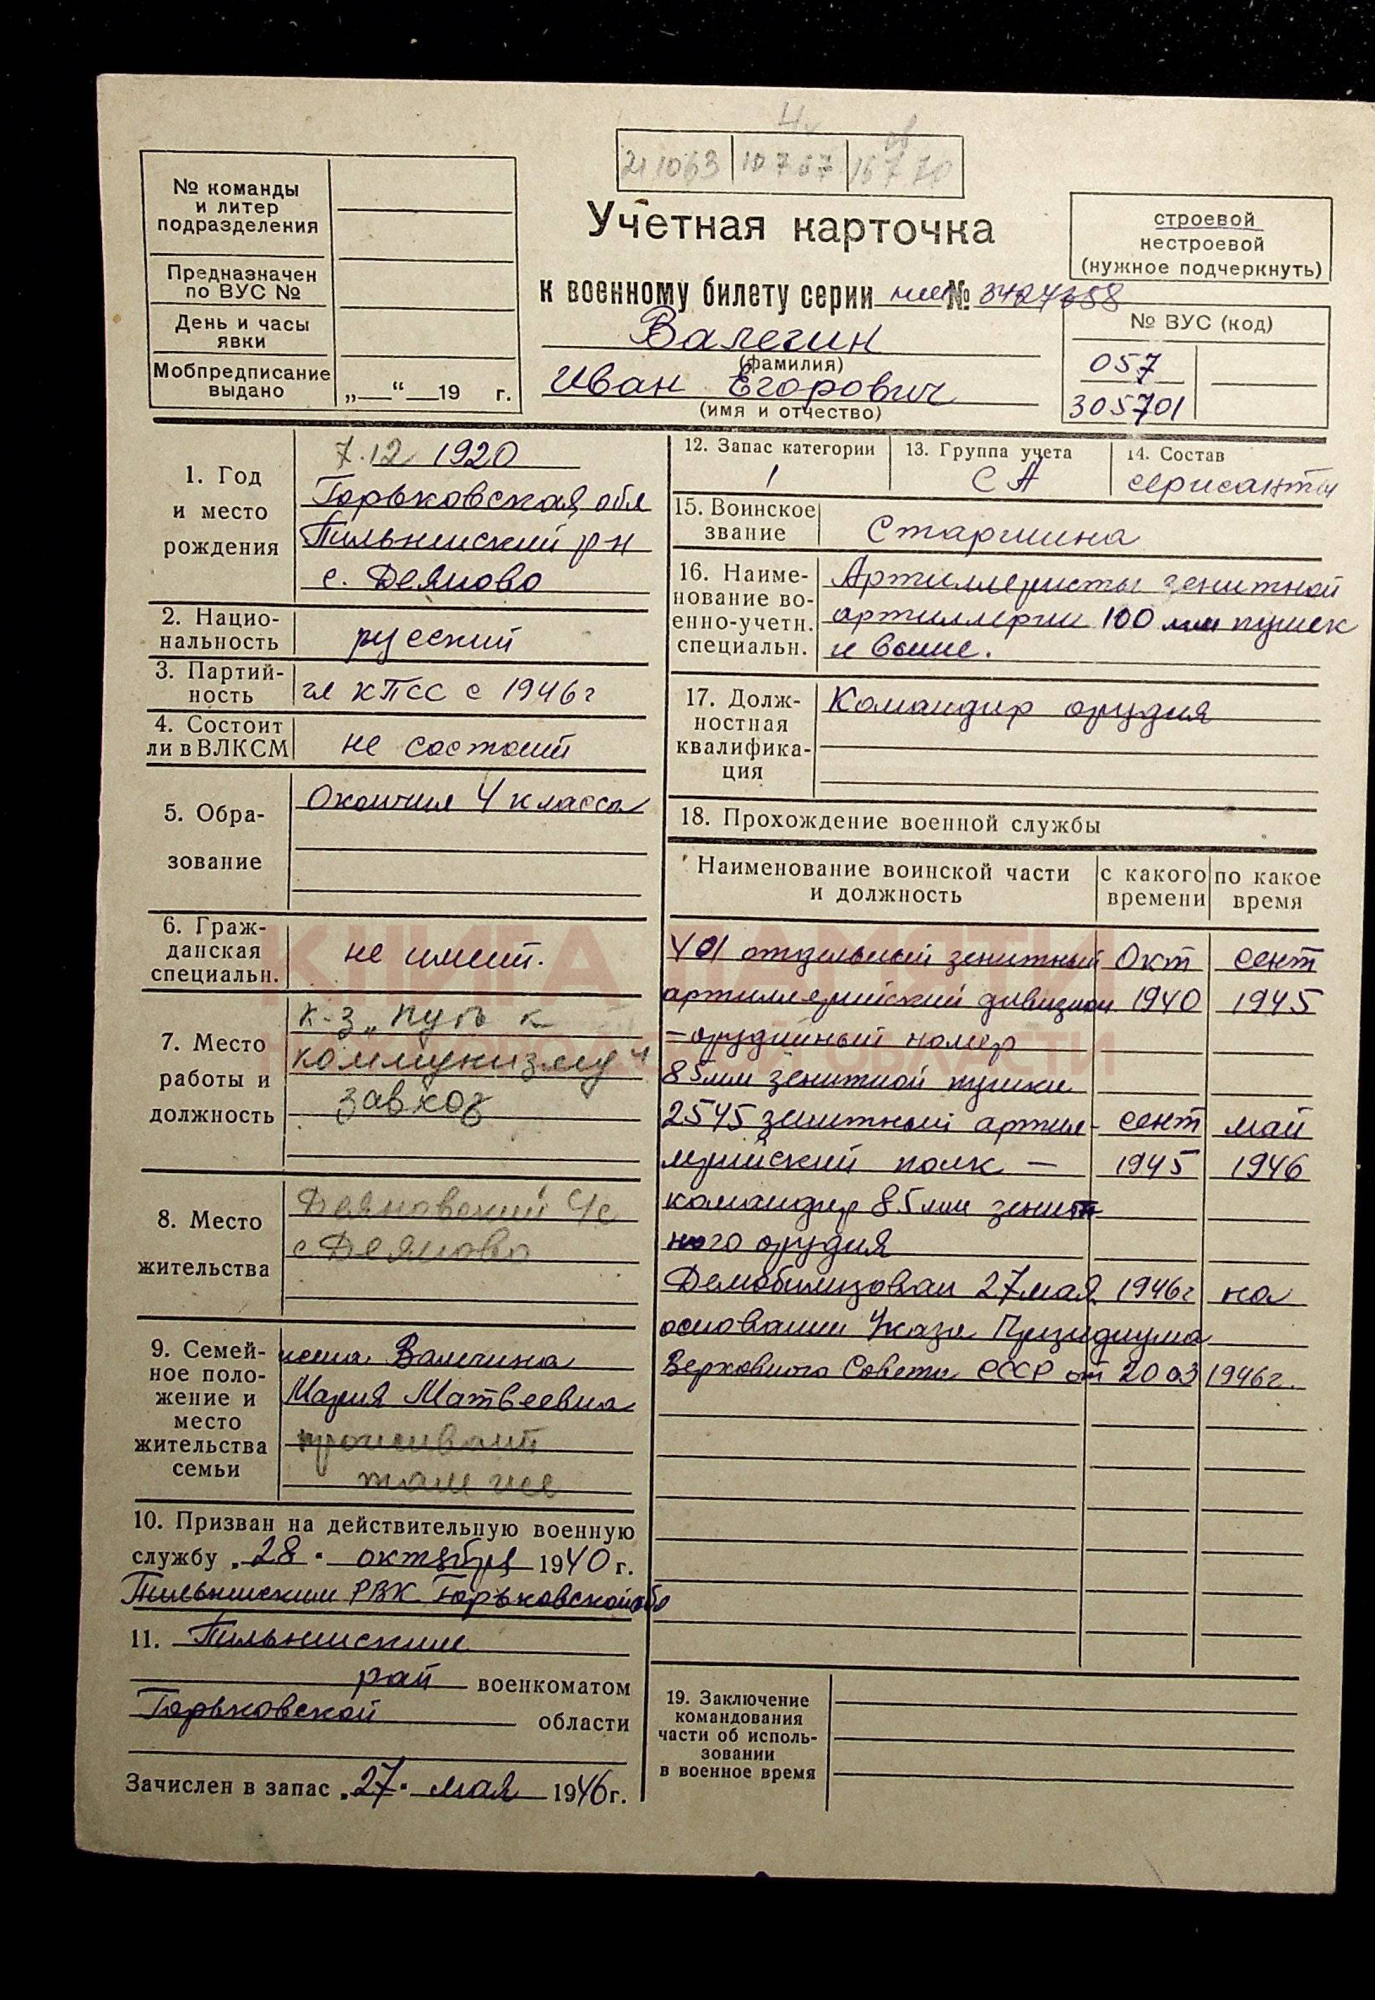 21 10 63 10 7 67 16 7 70
№ команды
и литер
подразделения
Предназначен
по ВУС №
День и часы
явки
Мобпредписание
выдано
„ “ 19 г.
Учетная карточка
к военному билету серии №
Валегин
(фамилия)
Иван Егорович
(имя и отчество)
строевой
нестроевой
(нужное подчеркнуть)
№ ВУС (код)
057
305701
1. Год
и место
рождения
7.12 1920
Горьковская обл
Пильнинский р-н
с. Деяново
2. Нацио-
нальность
русский
3. Партий-
ность
чл КПСС с 1946г
4. Состоит
ли в ВЛКСМ
не состоит
5. Обра-
зование
Окончил 4 класса
6. Граж-
данская
специальн.
не имеет.
7. Место
работы и
должность
к-з „Путь к
коммунизму“
завхоз
8. Место
жительства
Деяновский с/с
с Деяново
9. Семей-
ное поло-
жение и
место
жительства
семьи
жена Валегина
Мария Матвеевна
проживает
там же
10. Призван на действительную военную
службу „28“ октября 1940 г.
Пильнинским РВК Горьковской обл
11. Пильнинским
рай военкоматом
Горьковской области
Зачислен в запас „27“ мая 1946 г.
12. Запас категории
1
13. Группа учета
СА
14. Состав
сержанты
15. Воинское
звание
Старшина
16. Наиме-
нование во-
енно-учетн.
специальн.
Артиллеристы зенитной
артиллерии 100 мм пушек
и выше.
17. Долж-
ностная
квалифика-
ция
Командир орудия
18. Прохождение военной службы
Наименование воинской части
и должность
с какого
времени
по какое
время
401 отдельный зенитный окт сент
артиллерийский дивизион 1940 1945
– орудийный номер
85мм зенитной пушки
2545 зенитный артил- сент май
лерийский полк – 1945 1946
командир 85мм зенит
ного орудия
Демобилизован 27 мая 1946г на
основании Указа Президиума
Верховного Совета СССР от 20 03 1946г.
19. Заключение
командования
части об исполь-
зовании
в военное время
КНИГА ПАМЯТИ
НИЖЕГОРОДСКОЙ ОБЛАСТИ